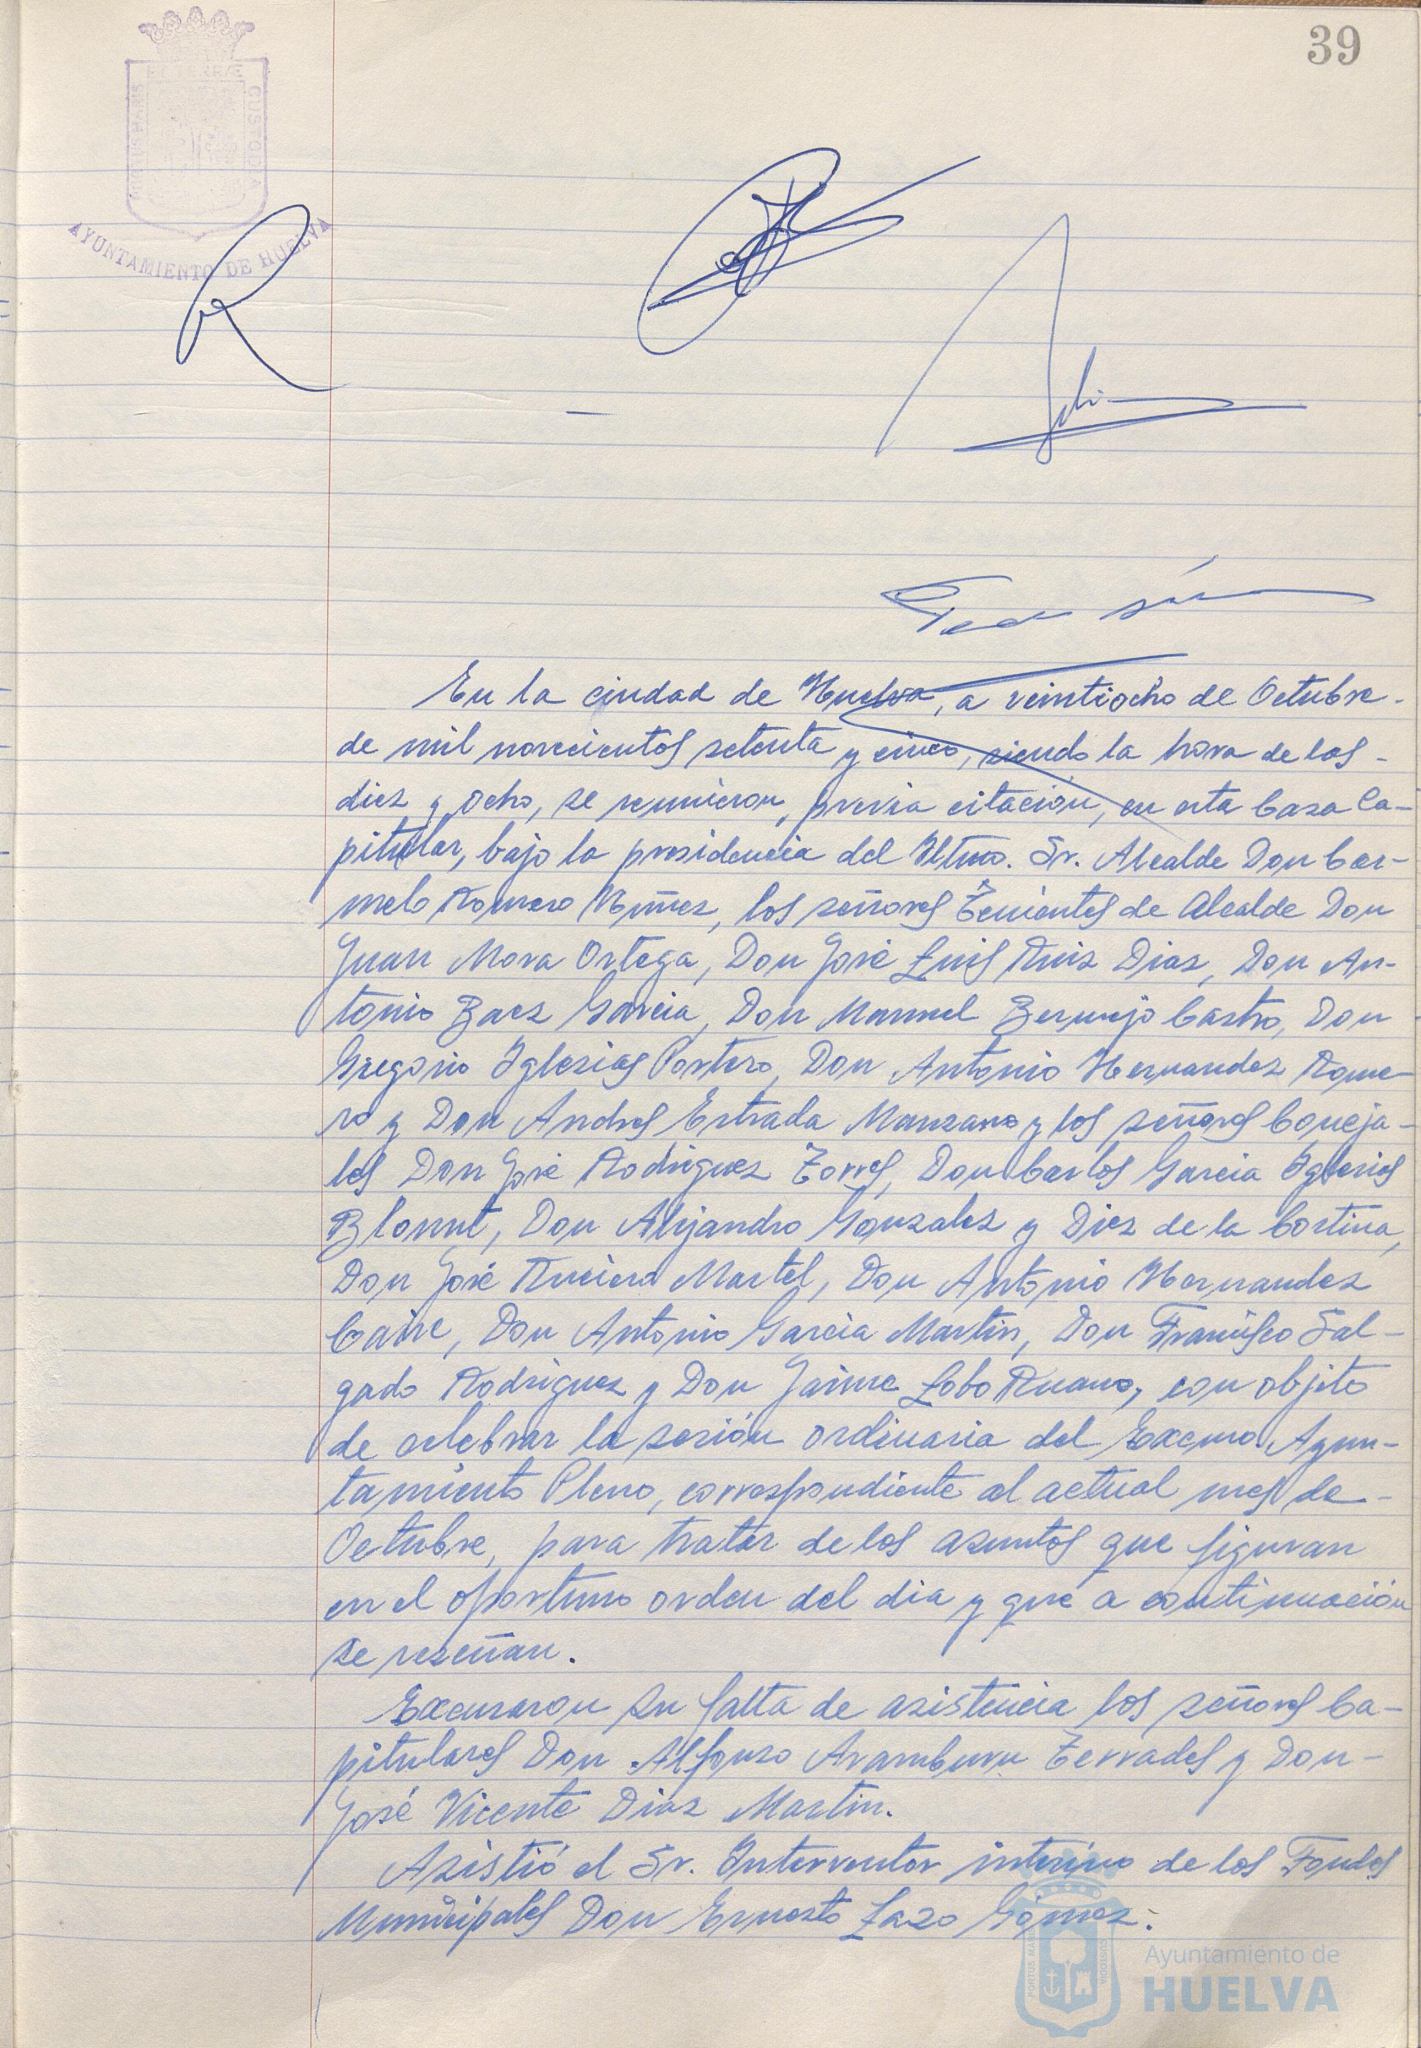 39
PORTUS MARIS ET TERRÆ CUSTODIA
AYUNTAMIENTO DE HUELVA
En la ciudad de Huelva, a veintiocho de Octubre-
de mil novecientos setenta y cinco, siendo la hora de las-
diez y ocho, se reunieron, previa citación, en esta Casa Ca-
pitular, bajo la presidencia del Iltmo. Sr. Alcalde Don Car-
melo Romero Núñez, los señores Tenientes de Alcalde Don
Juan Mora Ortega, Don José Luis Ruiz Diaz, Don An-
tonio Baez Garcia, Don Manuel Bermejo Castro, Don
Gregorio Iglesias Portero, Don Antonio Hernandez Rome-
ro y Don Andres Estrada Manzano y los señores Conceja-
les Don José Rodriguez Torres, Don Carlos Garcia Iglesias
Blount, Don Alejandro Gonzalez y Diez de la Cortina,
Don José Martel, Don Antonio Hernandez
Don Antonio Garcia Martin, Don Francisco Sal-
gado Rodriguez y Don Jaime Lobo Ruano, con objeto
de celebrar la sesión ordinaria del Excmo. Ayun-
tamiento Pleno, correspondiente al actual mes de-
Octubre, para tratar de los asuntos que figuran
en el oportuno orden del dia y que a continuación
se reseñan.
Excusaron su falta de asistencia los señores Ca-
pitulares Don Alfonso Aramburu Terrades y Don-
José Vicente Diaz Martin.
Asistió el Sr. Interventor interino de los Fondos
Municipales Don Ernesto Lazo Gómez.
Ayuntamiento de
HUELVA